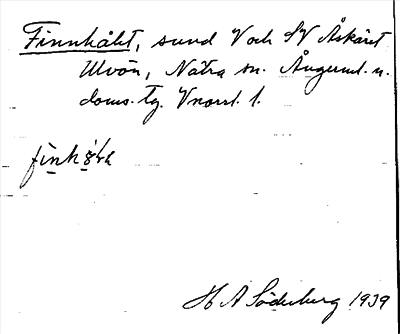 Finnhålet, sund V och SV Åskäret
Ulvön, Nätra sn. Ångerml. n.
doms. tg. Vnorrl. l.
H A Söderberg 1939